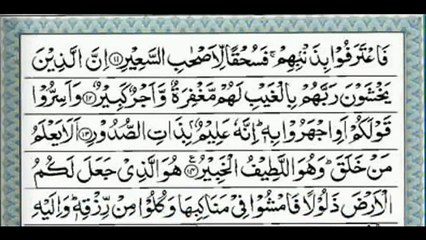 فَاعْتَرَفُوْا بِذَنْۢبِهِمْ ۚ فَسُحْقًا لِّاَصْحٰبِ السَّعِيْرِ ﴿۱۱﴾ اِنَّ الَّذِيْنَ
يَخْشَوْنَ رَبَّهُمْ بِالْغَيْبِ لَهُمْ مَّغْفِرَةٌ وَّاَجْرٌ كَبِيْرٌ ﴿۱۲﴾ وَاَسِرُّوْا
قَوْلَكُمْ اَوِ اجْهَرُوْا بِهٖ ؕ اِنَّهٗ عَلِيْمٌۢ بِذَاتِ الصُّدُوْرِ ﴿۱۳﴾ اَلَا يَعْلَمُ
مَنْ خَلَقَ ؕ وَهُوَ اللَّطِيْفُ الْخَبِيْرُ ﴿۱۴﴾ هُوَ الَّذِيْ جَعَلَ لَكُمُ
الْاَرْضَ ذَلُوْلًا فَامْشُوْا فِيْ مَنَاكِبِهَا وَكُلُوْا مِنْ رِّزْقِهٖ ؕ وَاِلَيْهِ